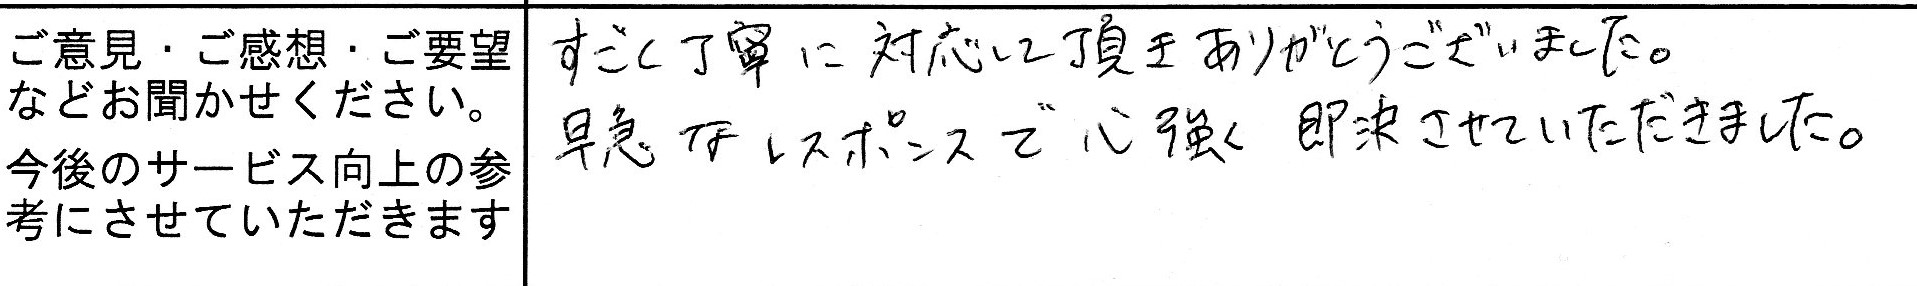 ご意見・ご感想・ご要望
などお聞かせください。
今後のサービス向上の参
考にさせていただきます
すごく丁寧に対応して頂きありがとうございました。
早急なレスポンスで心強く即決させていただきました。